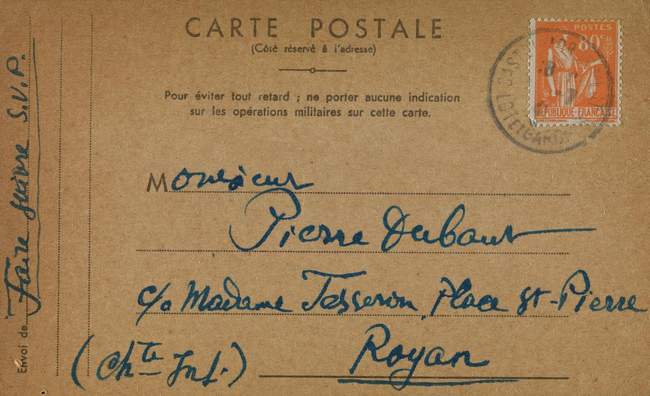 CARTE POSTALE
(Côté réservé à l'adresse)
Pour éviter tout retard ; ne porter aucune indication
sur les opérations militaires sur cette carte.
Monsieur
Pierre Dubaut
c/o Madame Tesseron, Place St-Pierre
Royan
(Chte Inf.)
Envoi de Faire suivre S.V.P.
80c
REPUBLIQUE FRANÇAISE
LOT-ET-GARONNE